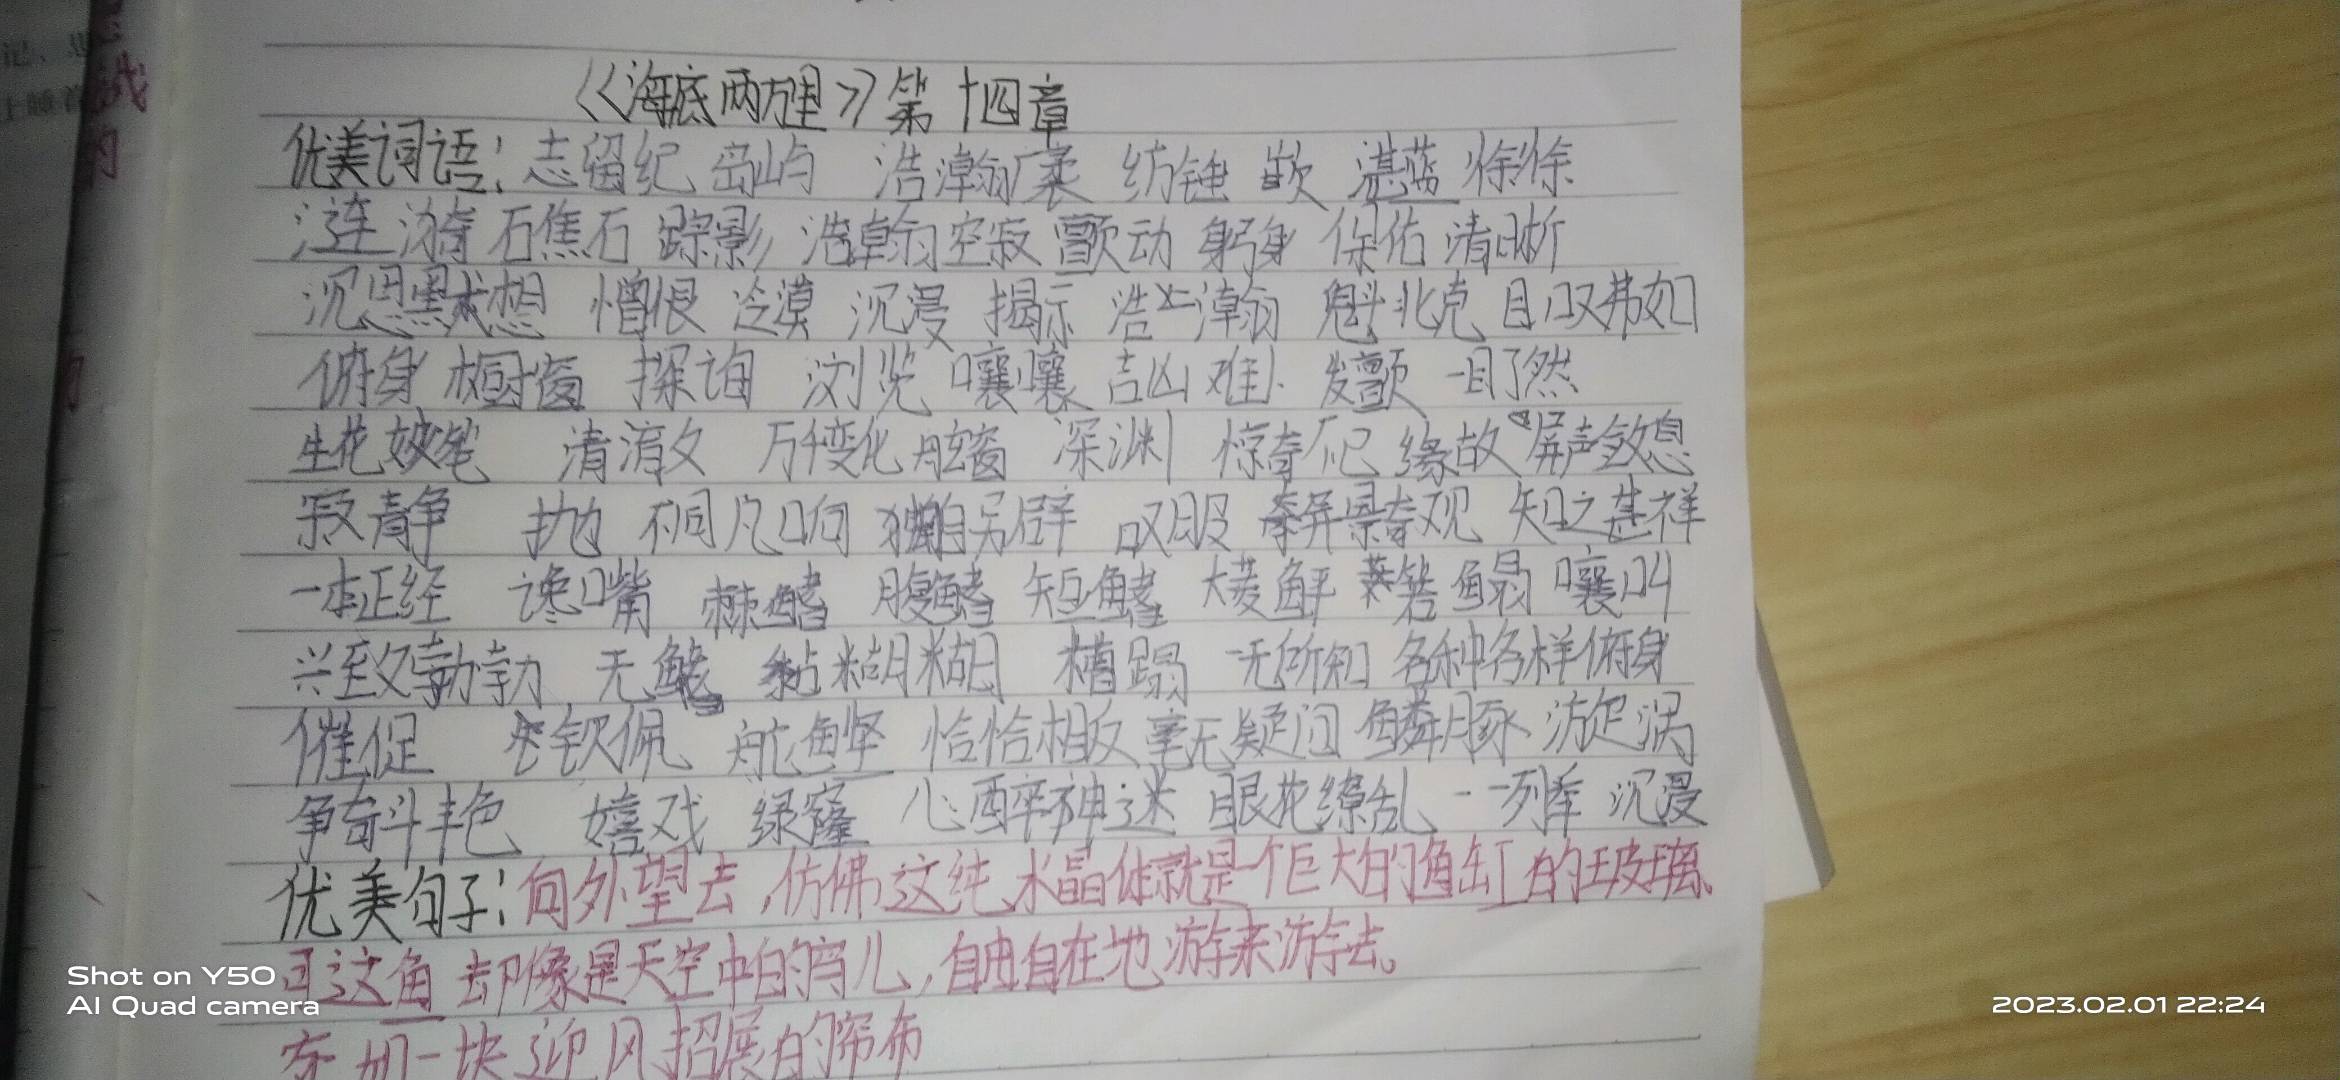 《海底两万里》第十四章
优美词语:志留纪 岛屿 浩瀚 广袤 纺锤 嵌 湛蓝 徐徐
涟漪 礁石 踪影 浩瀚 空寂 颤动 躬身 保佑 清晰
沉思默想 憎恨 冷漠 沉浸 揭示 浩瀚 魁北克 自叹弗如
俯身 橱窗 探询 浏览 嚷嚷 吉凶难卜 发颤 一目了然
生花妙笔 清澈 万千变化 舷窗 深渊 惊奇 缘故 屏声敛息
寂静 抛 不同凡响 独自另辟 叹服 奇景奇观 知之甚祥
一本正经 谗嘴 棘鳍 腹鳍 短鳍 嚷叫
兴致勃勃 无鳍 黏糊糊 糟蹋 一无所知 各种各样 俯身
催促 钦佩 恰恰相反 毫无疑问 鳞豚 漩涡
争奇斗艳 嬉戏 绿窿 心醉神迷 眼花缭乱 一一列举 沉浸
优美句子:向外望去,仿佛这纯水晶体就是一个巨大的鱼缸的玻璃、
这鱼却像是天空中的鸟儿,自由自在地游来游去。
如一块迎风招展的帘布
Shot on Y50
AI Quad camera
2023.02.01 22:24